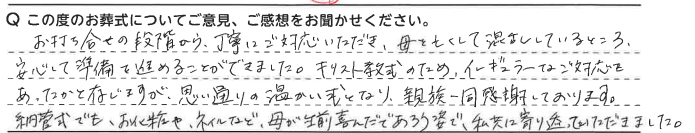 Q この度のお葬式についてご意見、ご感想をお聞かせください。
お打ち合せの段階から、丁寧にご対応いただき、母を亡くして混乱しているところ、
安心して準備を進めることができました。キリスト教式のため、イレギュラーなご対応も
あったかと存じますが、思い通りの温かい式となり、親族一同感謝しております。
納管式でも、お化粧や、ネイルなど、母が生前喜んだであろう姿で、私共に寄り添っていただきました。